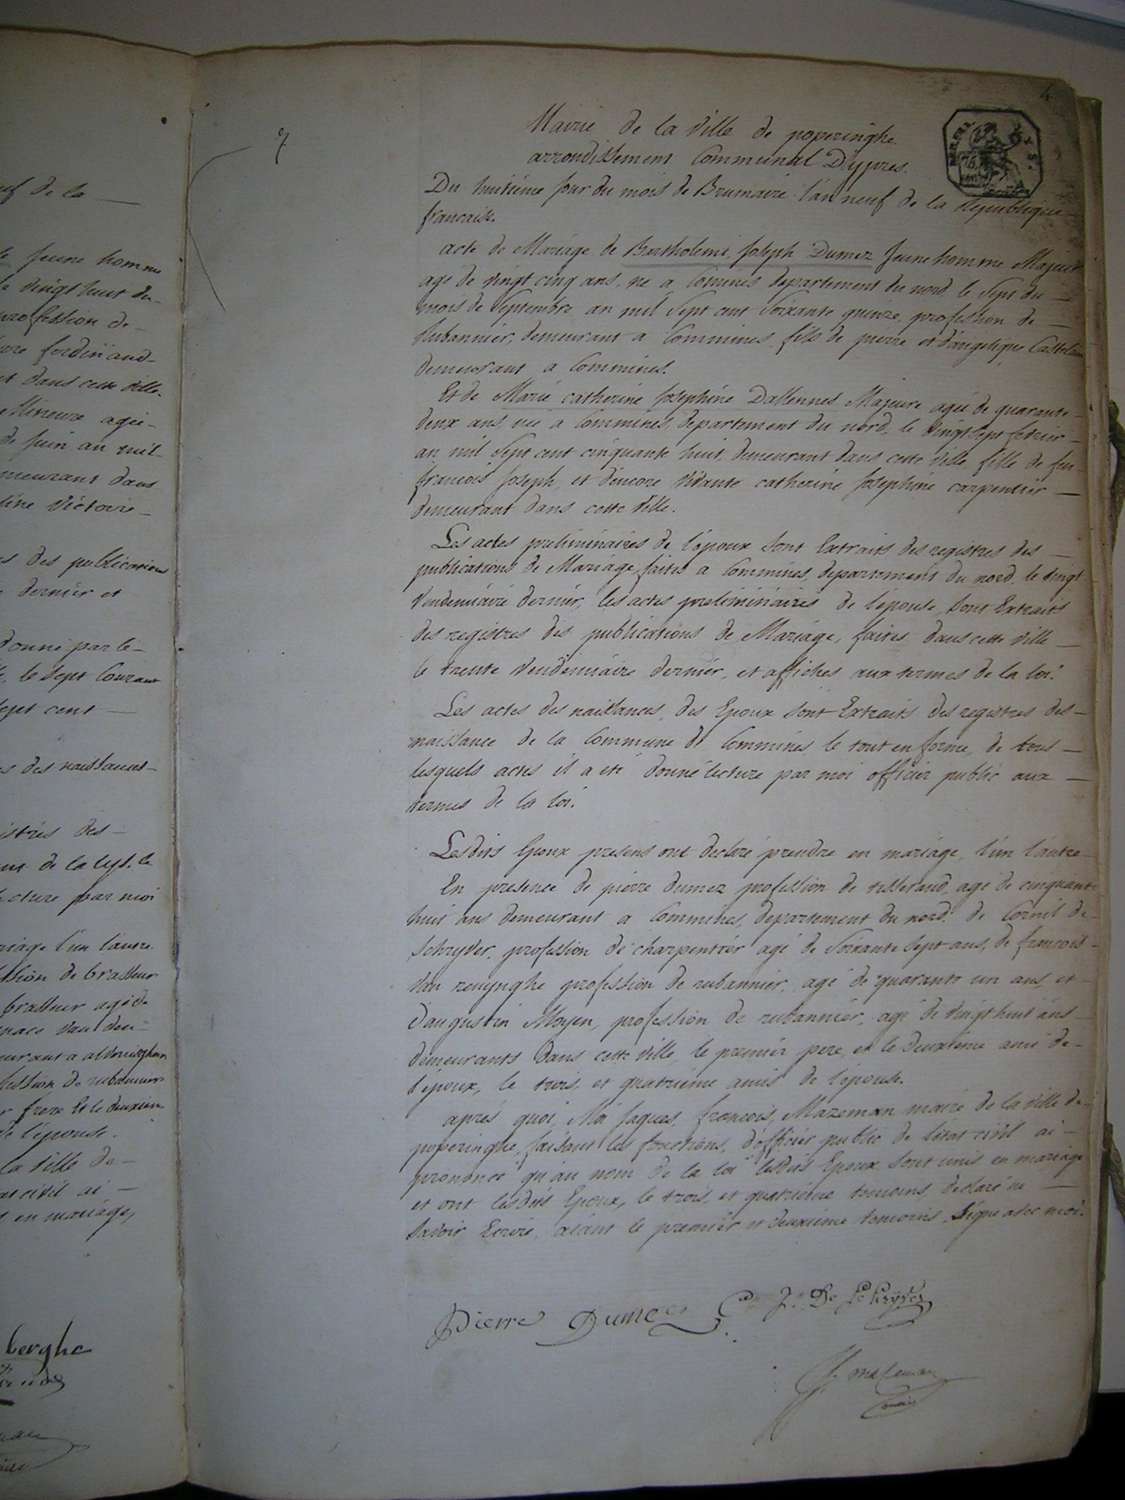 uf de la —
le jeune homme
vingt huit du-
profession de -
ferdinand-
et dans cette ville.
Mineure agée-
de Juin an mil
demeurant dans
Victoire -
des publications
dernier et
donné par le -
le sept Courant
sept cent —
des naissances -
registres des -
de la Lys. le
lecture par moi
mariage l'un l'autre
de brasseur
brasseur agé de
demeurant a
profession de rubannier
frere et le deuxieme
de l'épouse.
la Ville de -
état civil ai —
en mariage,
berghe
7
4
Mairie de la Ville de poperinghe
arrondissement Communal D'ypres.
Du huitiéme jour du mois de Brumaire l'an neuf de la Republique
francaise.
acte de Mariage de Bartholemé Joseph Dumez Jeune homme Majeur
agé de vingt cinq ans, né a Comines departement du nord le Sept du —
mois de Septembre an mil Sept cent Soixante quinze, profession de —
Rubannier, demeurant a Commines, fils de pierre et d'angelique Castelain
demeurant a Commines.
Et de Marie catherine Josephine Dallennes Majeure agée de quarante -
deux ans, née a Commines, departement du nord, le vingt sept fevrier -
an mil Sept cent cinquante huit, demeurant dans cette ville, fille de feu
francois Joseph, et d'encore Vivante catherine Josephine carpentier —
demeurant dans cette Ville.
Les actes preliminaires de l'époux Sont Extraits des registres des —
publications de Mariage, faites a Commines, departement du nord, le vingt
Vendemiaire dernier, les actes preleminiaires de l'épouse, Sont Extraits
des registres des publications de Mariage, faites dans cette Ville —
le trente Vendemiaire dernier, et affichés aux termes de la loi.
Les actes des naissances, des Epoux Sont Extraits des registres des -
naissance de la Commune de Commines le tout en forme, de tous —
lesquels actes il a eté donné lecture par moi officier public aux —
termes de la loi.
Lesdits Epoux presens ont declaré prendre en mariage, l'un l'autre -
En presence de pierre dumez profession de tisserand, agé de cinquante
huit ans demeurant a Commines, departement du nord. de Cornil de -
Schryver, profession de charpentier agé de Soixante Sept ans, de francois -
Van renynghe profession de rubannier, agé de quarante un ans et -
d'augustin Moyen, profession de rubannier, agé de vingt huit ans -
demeurants dans cette Ville, le premier pere, et le deuxiéme ami de -
l'époux, le trois et quatriéme amis de l'épouse.
aprés quoi, Moi Jaques francois, Mazeman maire de la Ville de -
poperinghe, faisant les fonctions, d'officier public de l'etat civil ai -
prononcé qu'au nom de la loi lesdits Epoux, Sont unis en mariage
et ont lesdits Epoux, le trois et quatriéme temoins, declaré ne —
Savoir Ecrire, aiant le premier et deuxiéme temoins, Signé avec moi.
Pierre Dumez C. J. De Schryver
J. mazeman
maire